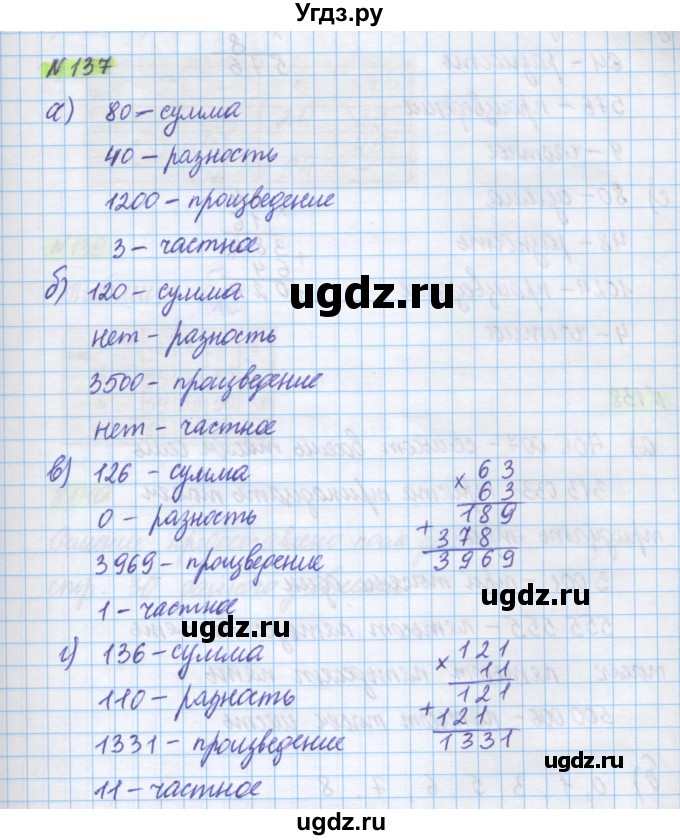 Угдз.ру
№137
а) 80 - сумма
40 - разность
1200 - произведение
3 - частное
б) 120 - сумма
ugdz.ru
нет - разность
3500 - произведение
нет - частное
в) 126 - сумма
0 - разность
3969 - произведение
1 - частное
× 63
63
189
+ 378
3969
ugdz.ru
ugdz.ru
г) 136 - сумма
110 - разность
1331 - произведение
11 - частное
× 121
11
121
+ 121
1331
ugdz.ru
ugdz.ru